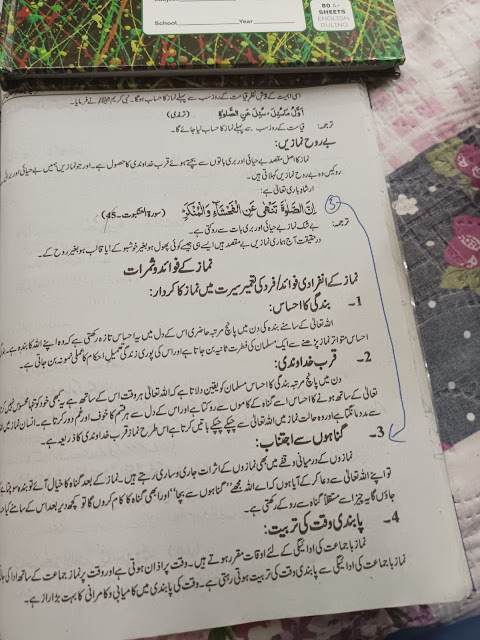 School
Year
80 A+
SHEETS
ENGLISH
RULING
اسی اہمیت کے پیش نظر قیامت کے روز سب سے پہلے نماز کا حساب ہوگا۔ نبی کریم ﷺ نے فرمایا۔
اَوَّلُ مَا سُئِلَ، سُئِلَ عَنِ الصَّلٰوۃِ (ترمذی)
ترجمہ: قیامت کے روز سب سے پہلے نماز کا حساب لیا جائے گا۔
بے روح نمازیں:
نماز کا اصل مقصد بے حیائی اور بری باتوں سے بچتے ہوئے قرب خداوندی کا حصول ہے۔ اور جو نمازیں ہمیں بے حیائی اور برائی
روکیں وہ بے روح نمازیں کہلاتی ہیں۔
ارشاد باری تعالیٰ ہے:
اِنَّ الصَّلٰوۃَ تَنْھٰی عَنِ الْفَحْشَآءِ وَالْمُنْکَرِ (سورۃ العنکبوت۔ 45)
3
ترجمہ: بے شک نماز بے حیائی اور بری بات سے روکتی ہے۔
درحقیقت آج ہماری نمازیں بے مقصد ہیں ایسے ہی جیسے کوئی پھول ہو بغیر خوشبو کے! یا قالب ہو بغیر روح کے۔
نماز کے فوائد و ثمرات
نماز کے انفرادی فوائد/فرد کی تعمیر سیرت میں نماز کا کردار:
1- بندگی کا احساس:
اللہ تعالیٰ کے سامنے بندہ کی دن میں پانچ مرتبہ حاضری اس کے دل میں یہ احساس تازہ رکھتی ہے کہ وہ اپنے اللہ کا بندہ ہے۔
احساس متواتر نماز پڑھنے سے ایک مسلمان کی فطرت ثانیہ بن جاتا ہے اور اس کی پوری زندگی تعمیل احکام کا عملی نمونہ بن جاتی ہے۔
2- قرب خداوندی:
دن میں پانچ مرتبہ بندگی کا احساس مسلمان کو یقین دلاتا ہے کہ اللہ تعالیٰ ہر وقت اس کے ساتھ ہے یہ کبھی خود کو تنہا محسوس نہیں
تعالیٰ کے ساتھ ہونے کا احساس اسے گناہ کے کاموں سے روکتا ہے اور اس کے دل سے ہر قسم کا خوف اور غم دور کرتا ہے۔ انسان نماز میں
سے مدد مانگتا ہے اور وہ حالت نماز میں اللہ تعالیٰ سے چپکے چپکے باتیں کرتا ہے اس طرح نماز قرب خداوندی کا ذریعہ ہے۔
3- گناہوں سے اجتناب:
نمازوں کے درمیانی وقفے میں بھی نمازوں کے اثرات جاری و ساری رہتے ہیں۔ نماز کے بعد گناہ کا خیال آئے تو بندہ سوچتا
تو اپنے اللہ تعالیٰ سے دعا کر کے آیا ہوں کہ اے اللہ مجھے "گناہوں سے بچا" اور ابھی گناہ کا کام کروں گا تو کچھ دیر بعد اس کے سامنے
جاؤں گا یہ چیز اسے مستقلاً گناہ سے روکے رکھتی ہے۔
4- پابندی وقت کی تربیت:
نماز باجماعت کی ادائیگی کے لئے اوقات مقرر ہوتے ہیں۔ وقت پر اذان ہوتی ہے اور وقت پر نماز جماعت کے ساتھ ادا کی
نماز باجماعت کی ادائیگی سے پابندی وقت کی تربیت ہوتی رہتی ہے۔ وقت کی پابندی میں کامیابی و کامرانی کا بہت بڑا راز ہے۔